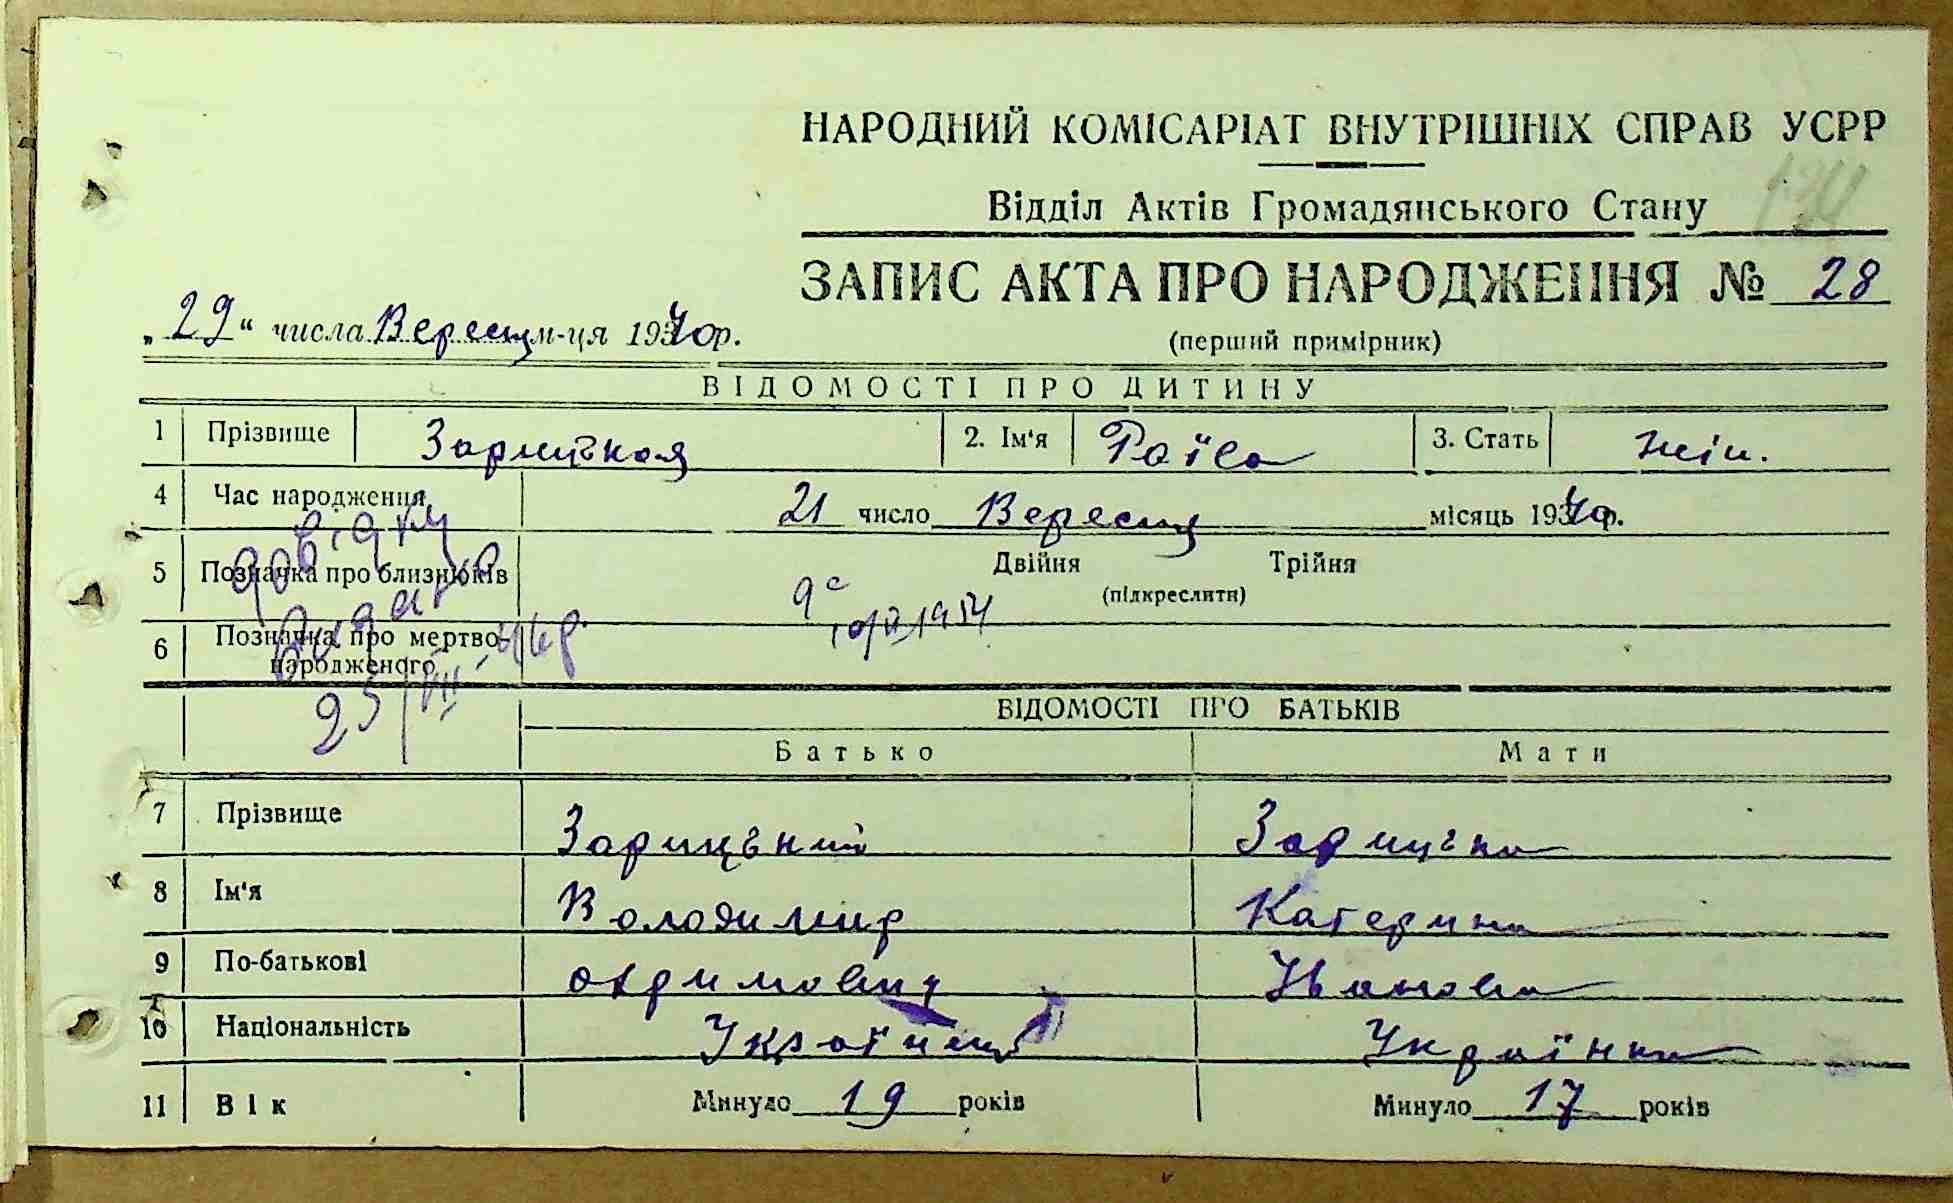 НАРОДНИЙ КОМІСАРІАТ ВНУТРІШНІХ СПРАВ УСРР
Відділ Актів Громадянського Стану
ЗАПИС АКТА ПРО НАРОДЖЕННЯ № 28
„29“ числа Вересня м-ця 1940р.
(перший примірник)
ВІДОМОСТІ ПРО ДИТИНУ
1 Прізвище 2. Ім'я Раїса 3. Стать жін.
4 Час народження 21 число Вересня місяць 1940р.
5 Позначка про близнюків Двійня Трійня
(підкреслити)
довідку
видано
6 Позначка про мертво-
народженого
ВІДОМОСТІ ПРО БАТЬКІВ
Батько Мати
7 Прізвище
8 Ім'я Володимир Катерина
9 По-батькові Іванівна
10 Національність Українець Українка
11 Вік Минуло 19 років Минуло 17 років